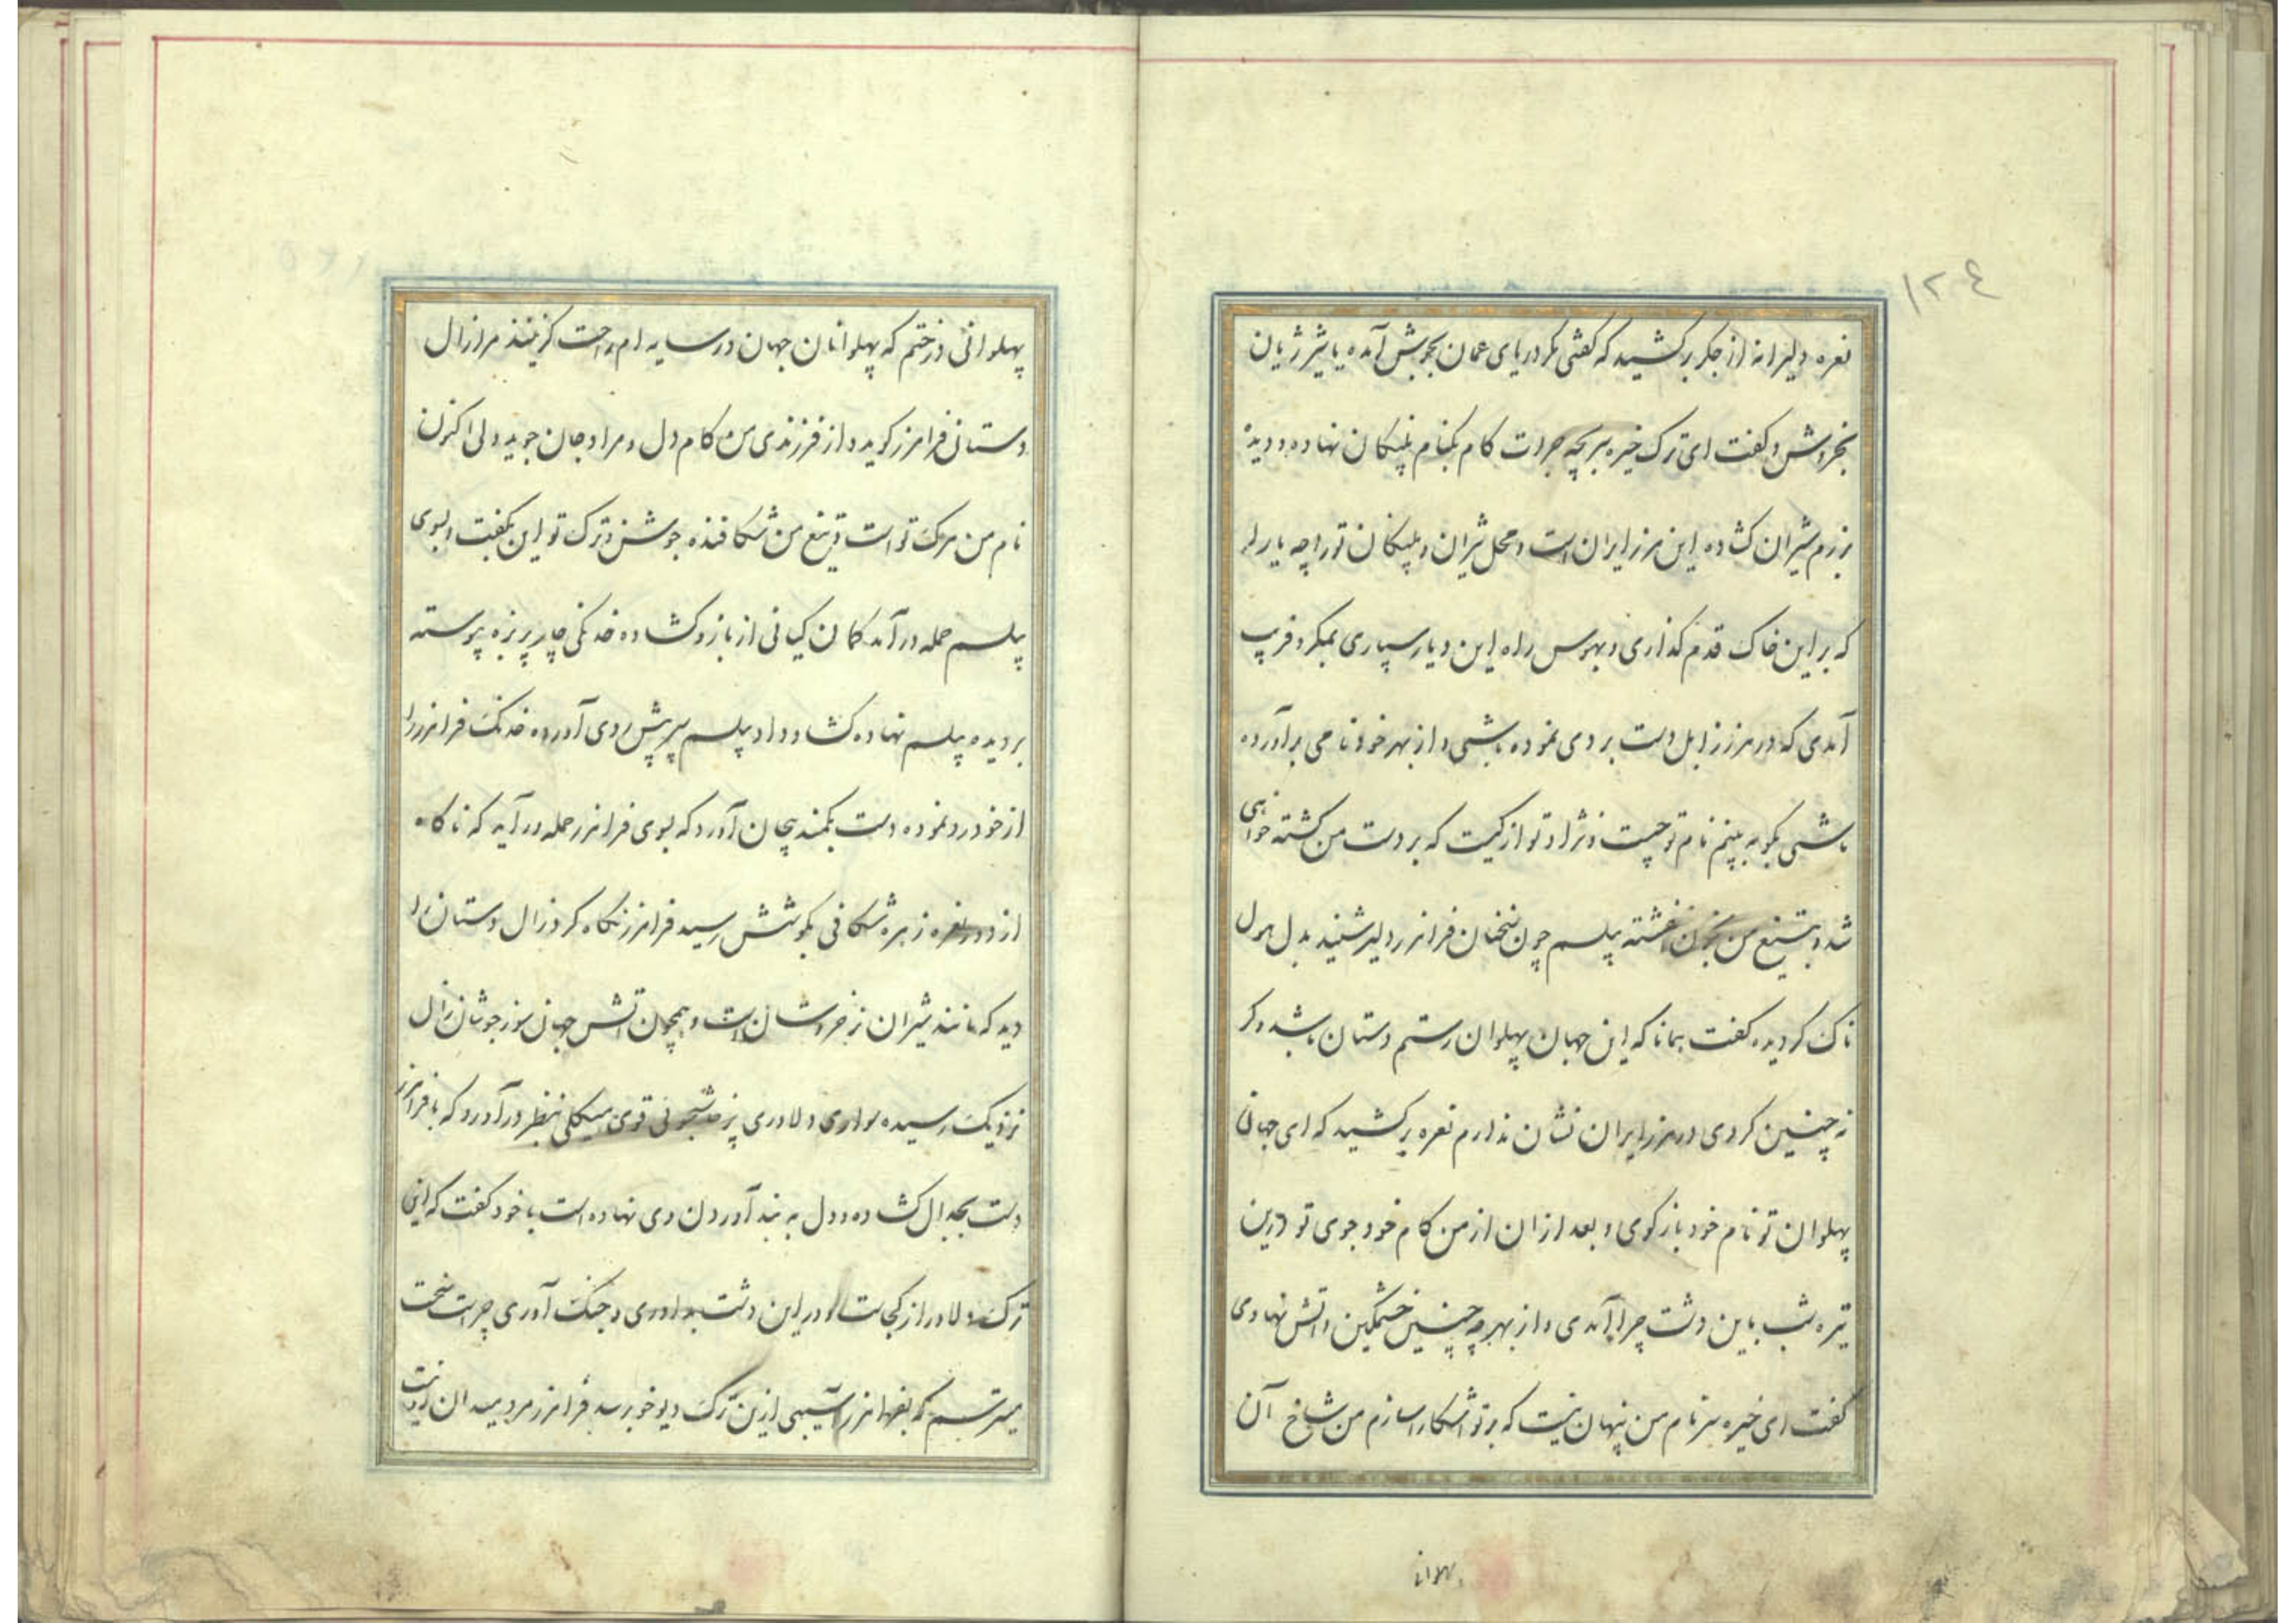 ۱۲۴
نعره دلیرانه از جکر برکشید که کفتی مکر دریای عمان بجوش آمده یا شیر ژیان
بخروش و کفت ای ترک خیره ببر بچه جرات کام بکنام پلنکان نهاده و دیده
برزم شیران کشاده این مرز ایران است و محل شیران و پلنکان تو را چه یارا
که بر این خاک قدم کذاری و بهوس راه این دیار سپاری بمکر و فریب
آمدی که در مرز زابل دست بردی نموده باشی و از بهر خود نامی برآورده
باشی بکو به بینم نام تو چیست و نژاد تو از کیست که بر دست من کشته خواهی
شد و بتیغ من بخون اغشته پیلسم چون سخنان فرامرز دلیر شنید بدل هول
ناک کردیده کفت همانا که این جهان پهلوان رستم دستان باشد و کر
نه چنین کردی در مرز ایران نشان ندارم نعره برکشید که ای جهانی
پهلوان تو نام خود بازکوی و بعد از ان از من کام خود جوی تو درین
تیره شب باین دشت چرا آمدی و از بهر چه چنین خشمکین و اتش نهادی
کفت ای خیره سر نام من پنهان نیست که بر تو اشکارا سازم من شاخ آن
پهلوانی درختم که پهلوانان جهان در سایه ام راحت کزینند مرا زال
دستان فرامرز کوید و از فرزندی من کام دل و مراد جان جوید ولی اکنون
نام من مرک تو است و تیغ من شکافنده جوشن و ترک تو این بکفت و بسوی
پیلسم حمله درآمد کمان کیانی از بازو کشاده خدنکی چار پر بزه پیوسته
بر دیده پیلسم نهاده کشاد داد پیلسم سپر پیش روی آورده خدنک فرامرز را
از خود رد نموده دست بکمند پیچان آورد که بسوی فرامرز حمله درآید که ناکاه
از دور نعره زهره شکافی بکوشش رسید فرامرز نکاه کرد زال دستان را
دید که مانند شیران نر خروشان است و همچون اتش جهان سوز جوشان زال
نزدیک رسیده سواری و لاوری پرخاشجوئی قوی هیکلی بنظر درآورد که با فرامرز
دست بجدال کشاده و دل به بند آوردن وی نهاده است با خود کفت که این
ترک دلاور از کجاست و در این دشت بداوری و جنک آوری چراست سخت
میترسم که بفرامرز آسیبی ازین ترک دیو خو برسد فرامرز مرد میدان
پهلوانا